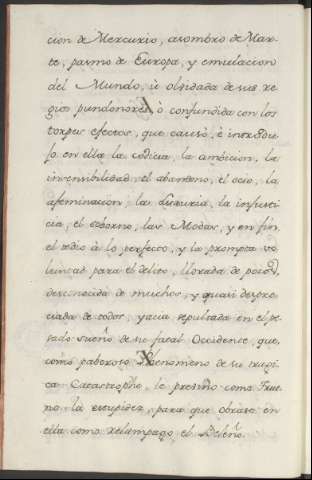 cion de Mercurio, asombro de Mar-
te, pasmo de Europa, y emulacion
del Mundo, ù olvidada de sus re
gios pundonores, ò confundida con los
torpes efectos, que causò, è introdu
jo en ella la codicia, la ambicion, la
insensibilidad, el abandono, el ocio, la
afeminacion, la injusti
cia, el soborno, las Modas, y en fin
el tedio à lo perfecto, y la prompta vo
luntad para el delito, llorada de pocos,
desconocida de muchos, y quasi despre
ciada de todos, yacia sepultada en el pe
sado sueño de su fatal Occidente, que,
como paboroso Phenomeno de su tragi
ca Catastrophe, le previno como True
no la estupidez, para que obrase en
ella como Relampago el Beleño.